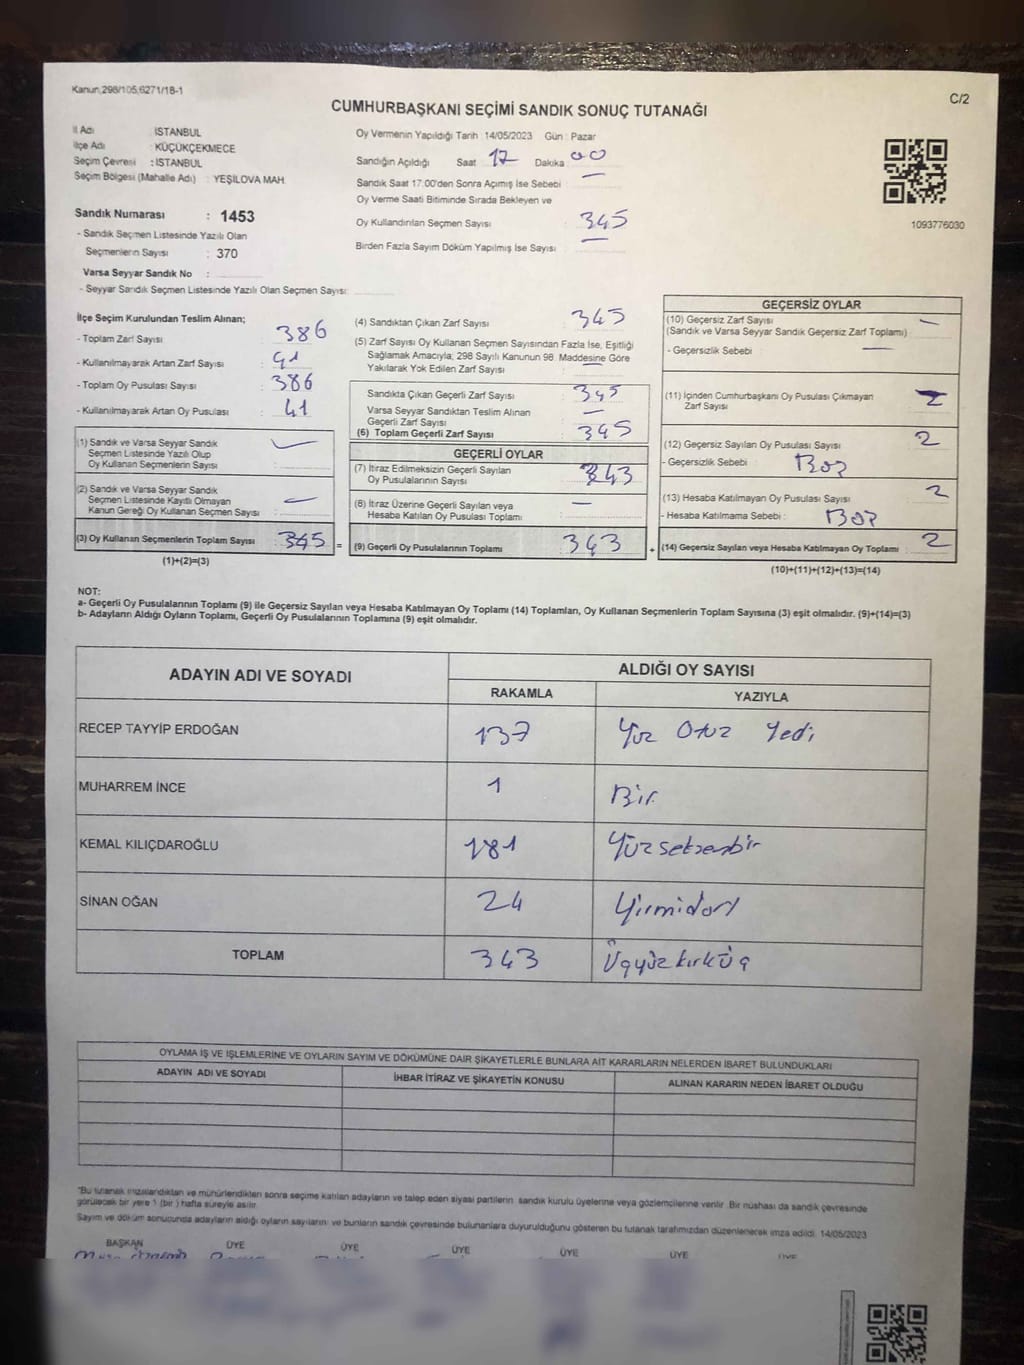 Kanun 298/105,6271/18-1
C/2
CUMHURBAŞKANI SEÇİMİ SANDIK SONUÇ TUTANAĞI
İl Adı : İSTANBUL
İlçe Adı : KÜÇÜKÇEKMECE
Seçim Çevresi : İSTANBUL
Seçim Bölgesi (Mahalle Adı) : YEŞİLOVA MAH.
Sandık Numarası : 1453
- Sandık Seçmen Listesinde Yazılı Olan
Seçmenlerin Sayısı : 370
Varsa Seyyar Sandık No :
- Seyyar Sandık Seçmen Listesinde Yazılı Olan Seçmen Sayısı:
Oy Vermenin Yapıldığı Tarih 14/05/2023 Gün : Pazar
Sandığın Açıldığı Saat 17 Dakika 00
Sandık Saat 17:00'den Sonra Açımış İse Sebebi : —
Oy Verme Saati Bitiminde Sırada Bekleyen ve
Oy Kullandırılan Seçmen Sayısı : 345
Birden Fazla Sayım Döküm Yapılmış İse Sayısı : —
1093776030
İlçe Seçim Kurulundan Teslim Alınan;
- Toplam Zarf Sayısı : 386
- Kullanılmayarak Artan Zarf Sayısı : 41
- Toplam Oy Pusulası Sayısı : 386
- Kullanılmayarak Artan Oy Pusulası : 41
(1) Sandık ve Varsa Seyyar Sandık
Seçmen Listesinde Yazılı Olup
Oy Kullanan Seçmenlerin Sayısı :
(2) Sandık ve Varsa Seyyar Sandık
Seçmen Listesinde Kayıtlı Olmayan
Kanun Gereği Oy Kullanan Seçmen Sayısı : —
(3) Oy Kullanan Seçmenlerin Toplam Sayısı : 345 =
(1)+(2)=(3)
(4) Sandıktan Çıkan Zarf Sayısı : 345
(5) Zarf Sayısı Oy Kullanan Seçmen Sayısından Fazla İse, Eşitliği
Sağlamak Amacıyla; 298 Sayılı Kanunun 98. Maddesine Göre
Yakılarak Yok Edilen Zarf Sayısı : —
Sandıkta Çıkan Geçerli Zarf Sayısı : 345
Varsa Seyyar Sandıktan Teslim Alınan
Geçerli Zarf Sayısı : —
(6) Toplam Geçerli Zarf Sayısı : 345
GEÇERLİ OYLAR
(7) İtiraz Edilmeksizin Geçerli Sayılan
Oy Pusulalarının Sayısı : 343
(8) İtiraz Üzerine Geçerli Sayılan veya
Hesaba Katılan Oy Pusulası Toplamı : —
(9) Geçerli Oy Pusulalarının Toplamı : 343 +
GEÇERSİZ OYLAR
(10) Geçersiz Zarf Sayısı : —
(Sandık ve Varsa Seyyar Sandık Geçersiz Zarf Toplamı)
- Geçersizlik Sebebi : —
(11) İçinden Cumhurbaşkanı Oy Pusulası Çıkmayan
Zarf Sayısı :
(12) Geçersiz Sayılan Oy Pusulası Sayısı : 2
- Geçersizlik Sebebi : Boş
(13) Hesaba Katılmayan Oy Pusulası Sayısı : 2
- Hesaba Katılmama Sebebi : Boş
(14) Geçersiz Sayılan veya Hesaba Katılmayan Oy Toplamı : 2
(10)+(11)+(12)+(13)=(14)
NOT:
a- Geçerli Oy Pusulalarının Toplamı (9) ile Geçersiz Sayılan veya Hesaba Katılmayan Oy Toplamı (14) Toplamları, Oy Kullanan Seçmenlerin Toplam Sayısına (3) eşit olmalıdır. (9)+(14)=(3)
b- Adayların Aldığı Oyların Toplamı, Geçerli Oy Pusulalarının Toplamına (9) eşit olmalıdır.
ADAYIN ADI VE SOYADI
ALDIĞI OY SAYISI
RAKAMLA YAZIYLA
RECEP TAYYİP ERDOĞAN 137 Yüz Otuz Yedi
MUHARREM İNCE 1 Bir
KEMAL KILIÇDAROĞLU 181 Yüzseksenbir
SİNAN OĞAN 24 Yirmidört
TOPLAM 343 Üçyüzkırküç
OYLAMA İŞ VE İŞLEMLERİNE VE OYLARIN SAYIM VE DÖKÜMÜNE DAİR ŞİKAYETLERLE BUNLARA AİT KARARLARIN NELERDEN İBARET BULUNDUKLARI
ADAYIN ADI VE SOYADI İHBAR İTİRAZ VE ŞİKAYETİN KONUSU ALINAN KARARIN NEDEN İBARET OLDUĞU
*Bu tutanak imzalandıktan ve mühürlendikten sonra seçime katılan adayların ve talep eden siyasi partilerin sandık kurulu üyelerine veya gözlemcilerine verilir. Bir nüshası da sandık çevresinde
görülecek bir yere 1 (bir) hafta süreyle asılır.
Sayım ve döküm sonucunda adayların aldığı oyların sayılarını ve bunların sandık çevresinde bulunanlara duyurulduğunu gösteren bu tutanak tarafımızdan düzenlenerek imza edildi. 14/05/2023
BAŞKAN ÜYE ÜYE ÜYE ÜYE ÜYE ÜYE